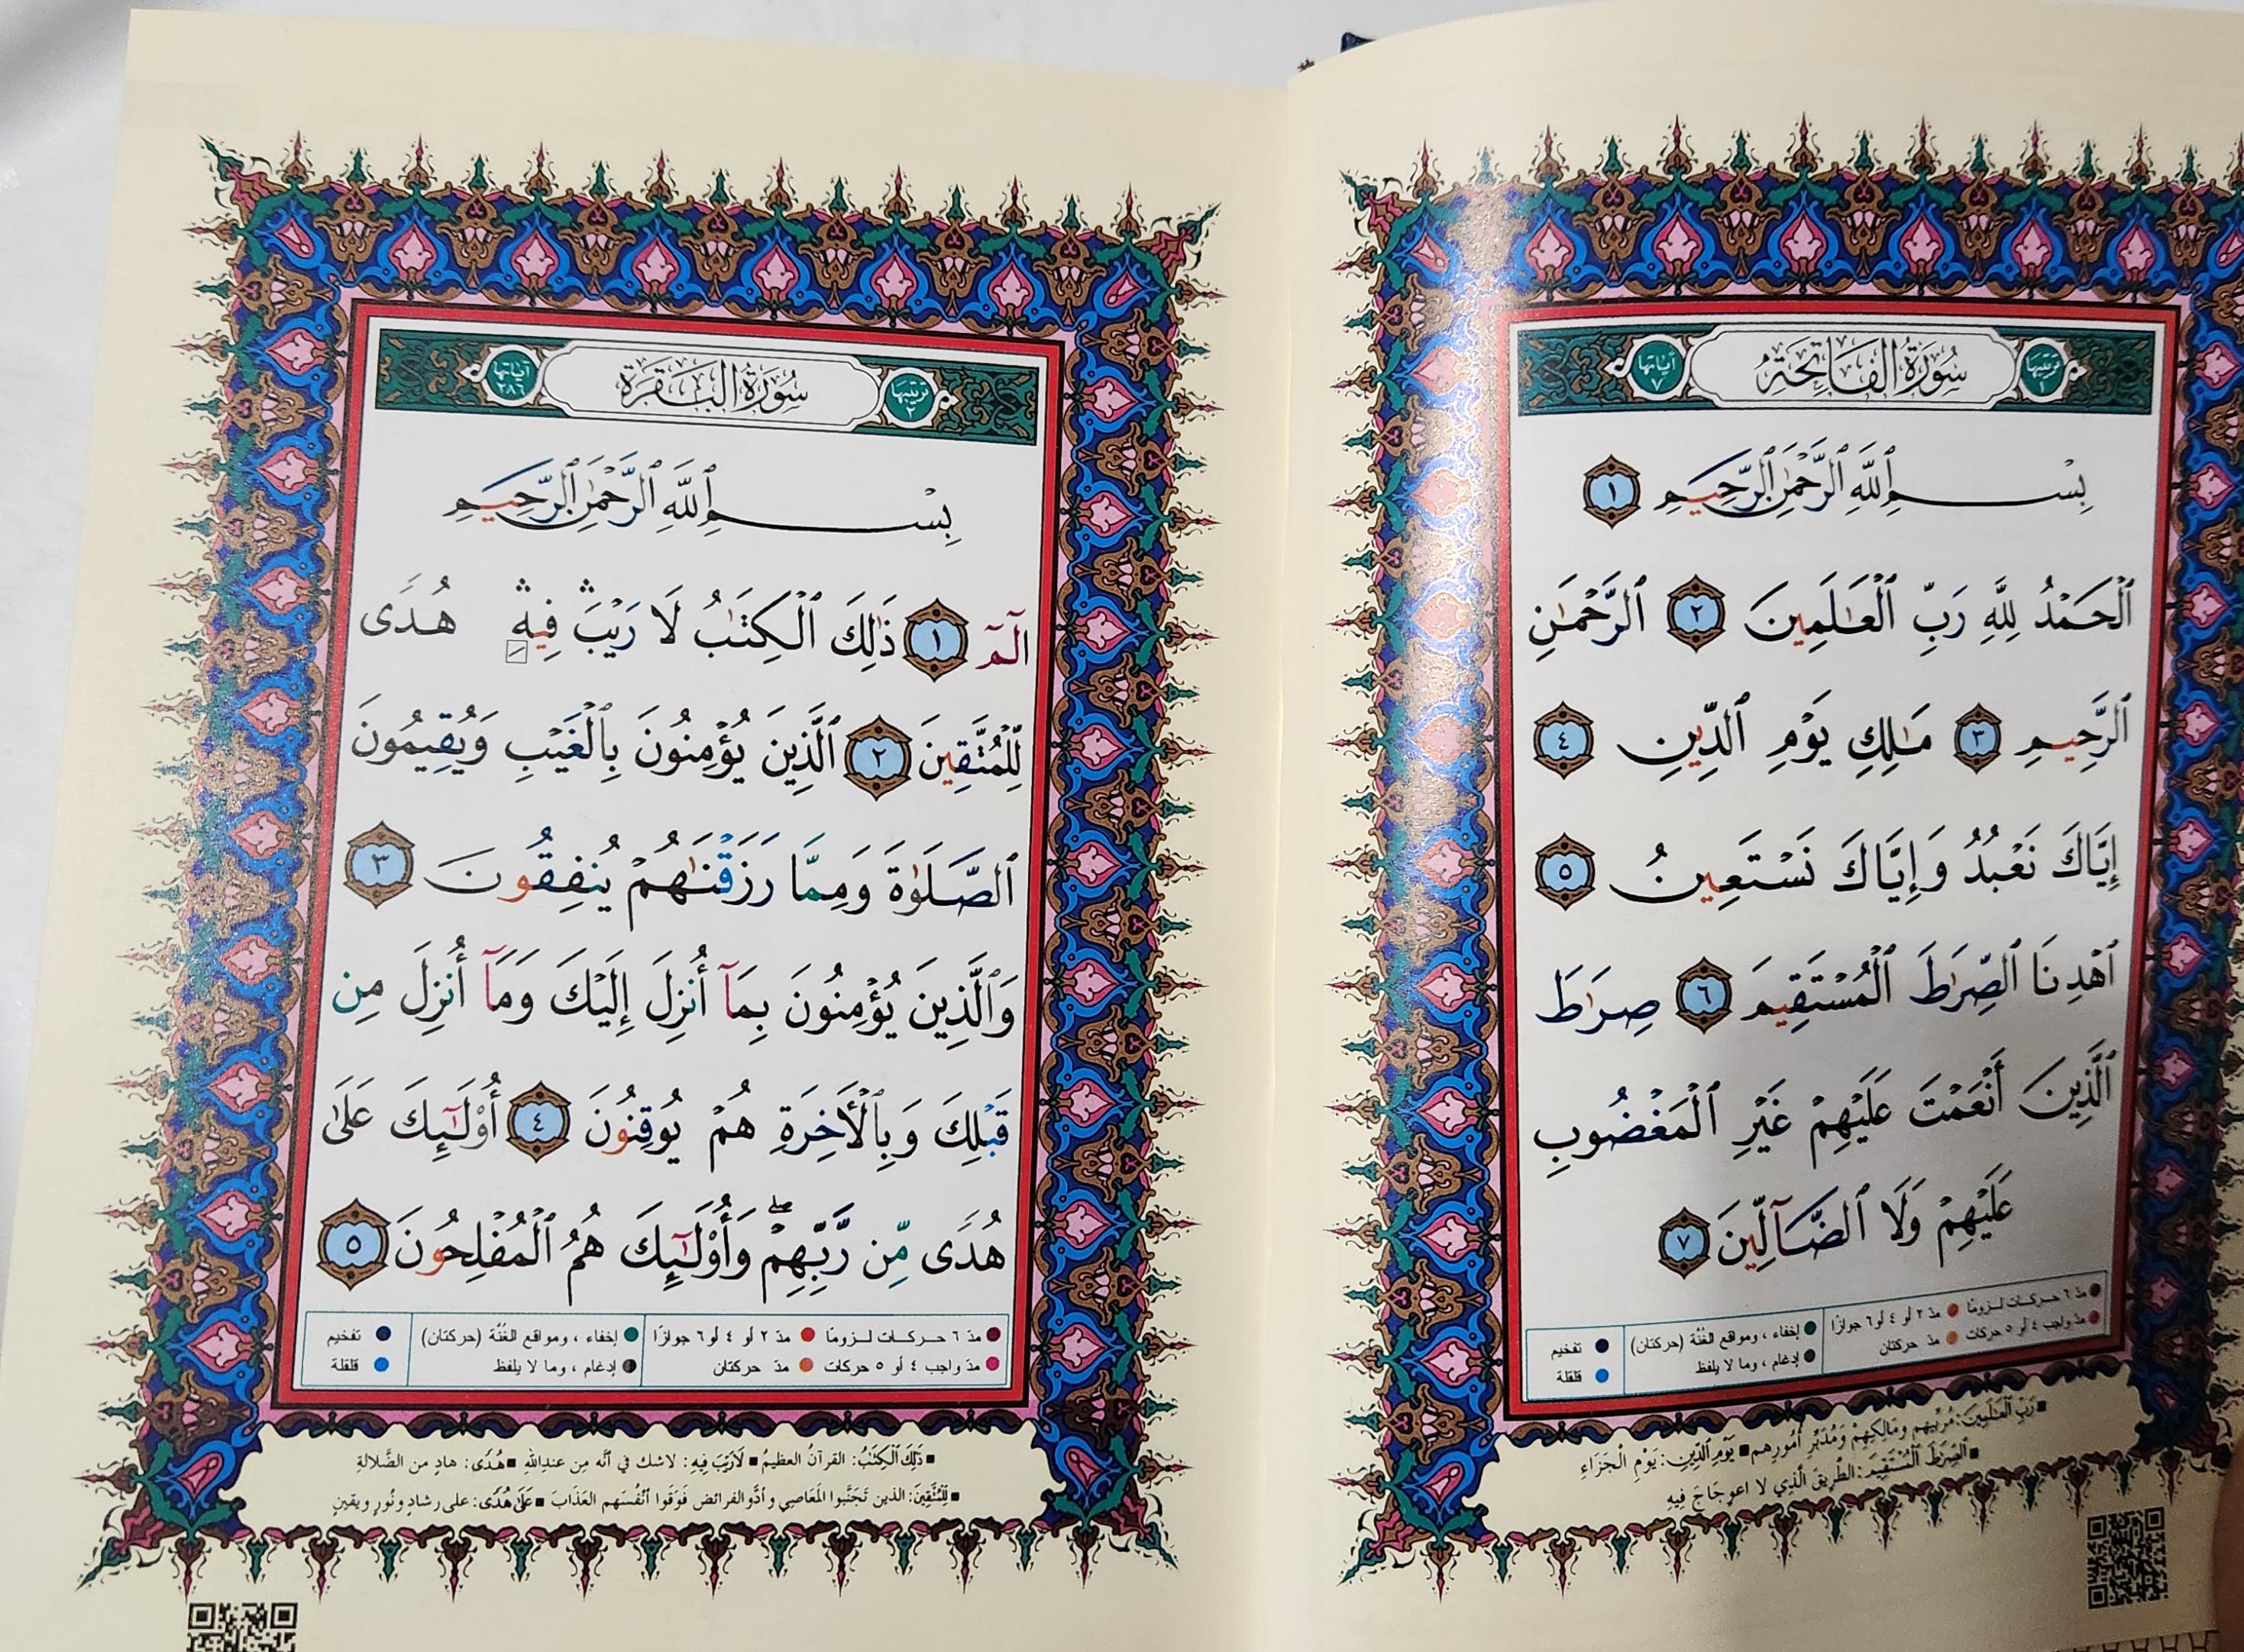 سُورَةُ الفَاتِحَةِ
ترتيبها ١
آياتها ٧
بِسْمِ ٱللَّهِ ٱلرَّحْمَٰنِ ٱلرَّحِيمِ ١
ٱلْحَمْدُ لِلَّهِ رَبِّ ٱلْعَٰلَمِينَ ٢ ٱلرَّحْمَٰنِ
ٱلرَّحِيمِ ٣ مَٰلِكِ يَوْمِ ٱلدِّينِ ٤
إِيَّاكَ نَعْبُدُ وَإِيَّاكَ نَسْتَعِينُ ٥
ٱهْدِنَا ٱلصِّرَٰطَ ٱلْمُسْتَقِيمَ ٦ صِرَٰطَ
ٱلَّذِينَ أَنْعَمْتَ عَلَيْهِمْ غَيْرِ ٱلْمَغْضُوبِ
عَلَيْهِمْ وَلَا ٱلضَّآلِّينَ ٧
مدّ ٦ حركات لزومًا مدّ ٢ أو ٤ أو ٦ جوازًا إخفاء ، ومواقع الغُنَّة (حركتان) تفخيم
مدّ واجب ٤ أو ٥ حركات مدّ حركتان إدغام ، وما لا يلفظ قلقلة
رَبِّ ٱلْعَٰلَمِينَ: مُرَبِّيهم ومَالِكِهِمْ وَمُدَبِّرِ أُمُورِهِم يَوْمِ ٱلدِّينِ: يَوْمِ الْجَزَاءِ
ٱلصِّرَٰطَ ٱلْمُسْتَقِيمَ: الطَّرِيقَ الَّذِي لا اعوِجَاجَ فِيهِ
سُورَةُ البَقَرَةِ
ترتيبها ٢
آياتها ٢٨٦
بِسْمِ ٱللَّهِ ٱلرَّحْمَٰنِ ٱلرَّحِيمِ
الٓمٓ ١ ذَٰلِكَ ٱلْكِتَٰبُ لَا رَيْبَۛ فِيهِۛ هُدًى
لِّلْمُتَّقِينَ ٢ ٱلَّذِينَ يُؤْمِنُونَ بِٱلْغَيْبِ وَيُقِيمُونَ
ٱلصَّلَوٰةَ وَمِمَّا رَزَقْنَٰهُمْ يُنفِقُونَ ٣
وَٱلَّذِينَ يُؤْمِنُونَ بِمَآ أُنزِلَ إِلَيْكَ وَمَآ أُنزِلَ مِن
قَبْلِكَ وَبِٱلْأَخِرَةِ هُمْ يُوقِنُونَ ٤ أُوْلَٰٓئِكَ عَلَىٰ
هُدًى مِّن رَّبِّهِمْۖ وَأُوْلَٰٓئِكَ هُمُ ٱلْمُفْلِحُونَ ٥
مدّ ٦ حركات لزومًا مدّ ٢ أو ٤ أو ٦ جوازًا إخفاء ، ومواقع الغُنَّة (حركتان) تفخيم
مدّ واجب ٤ أو ٥ حركات مدّ حركتان إدغام ، وما لا يلفظ قلقلة
ذَٰلِكَ ٱلْكِتَٰبُ: القرآنُ العظيمُ لَا رَيْبَ فِيهِ: لاشك في أنَّه مِن عندِ اللهِ هُدًى: هادٍ من الضَّلالةِ
لِّلْمُتَّقِينَ: الذين تَجَنَّبوا المَعَاصِي وأدَّوا الفرائض فَوَقَوا أنْفُسَهم العَذَابَ عَلَىٰ هُدًى: على رشادٍ ونُورٍ ويقينٍ